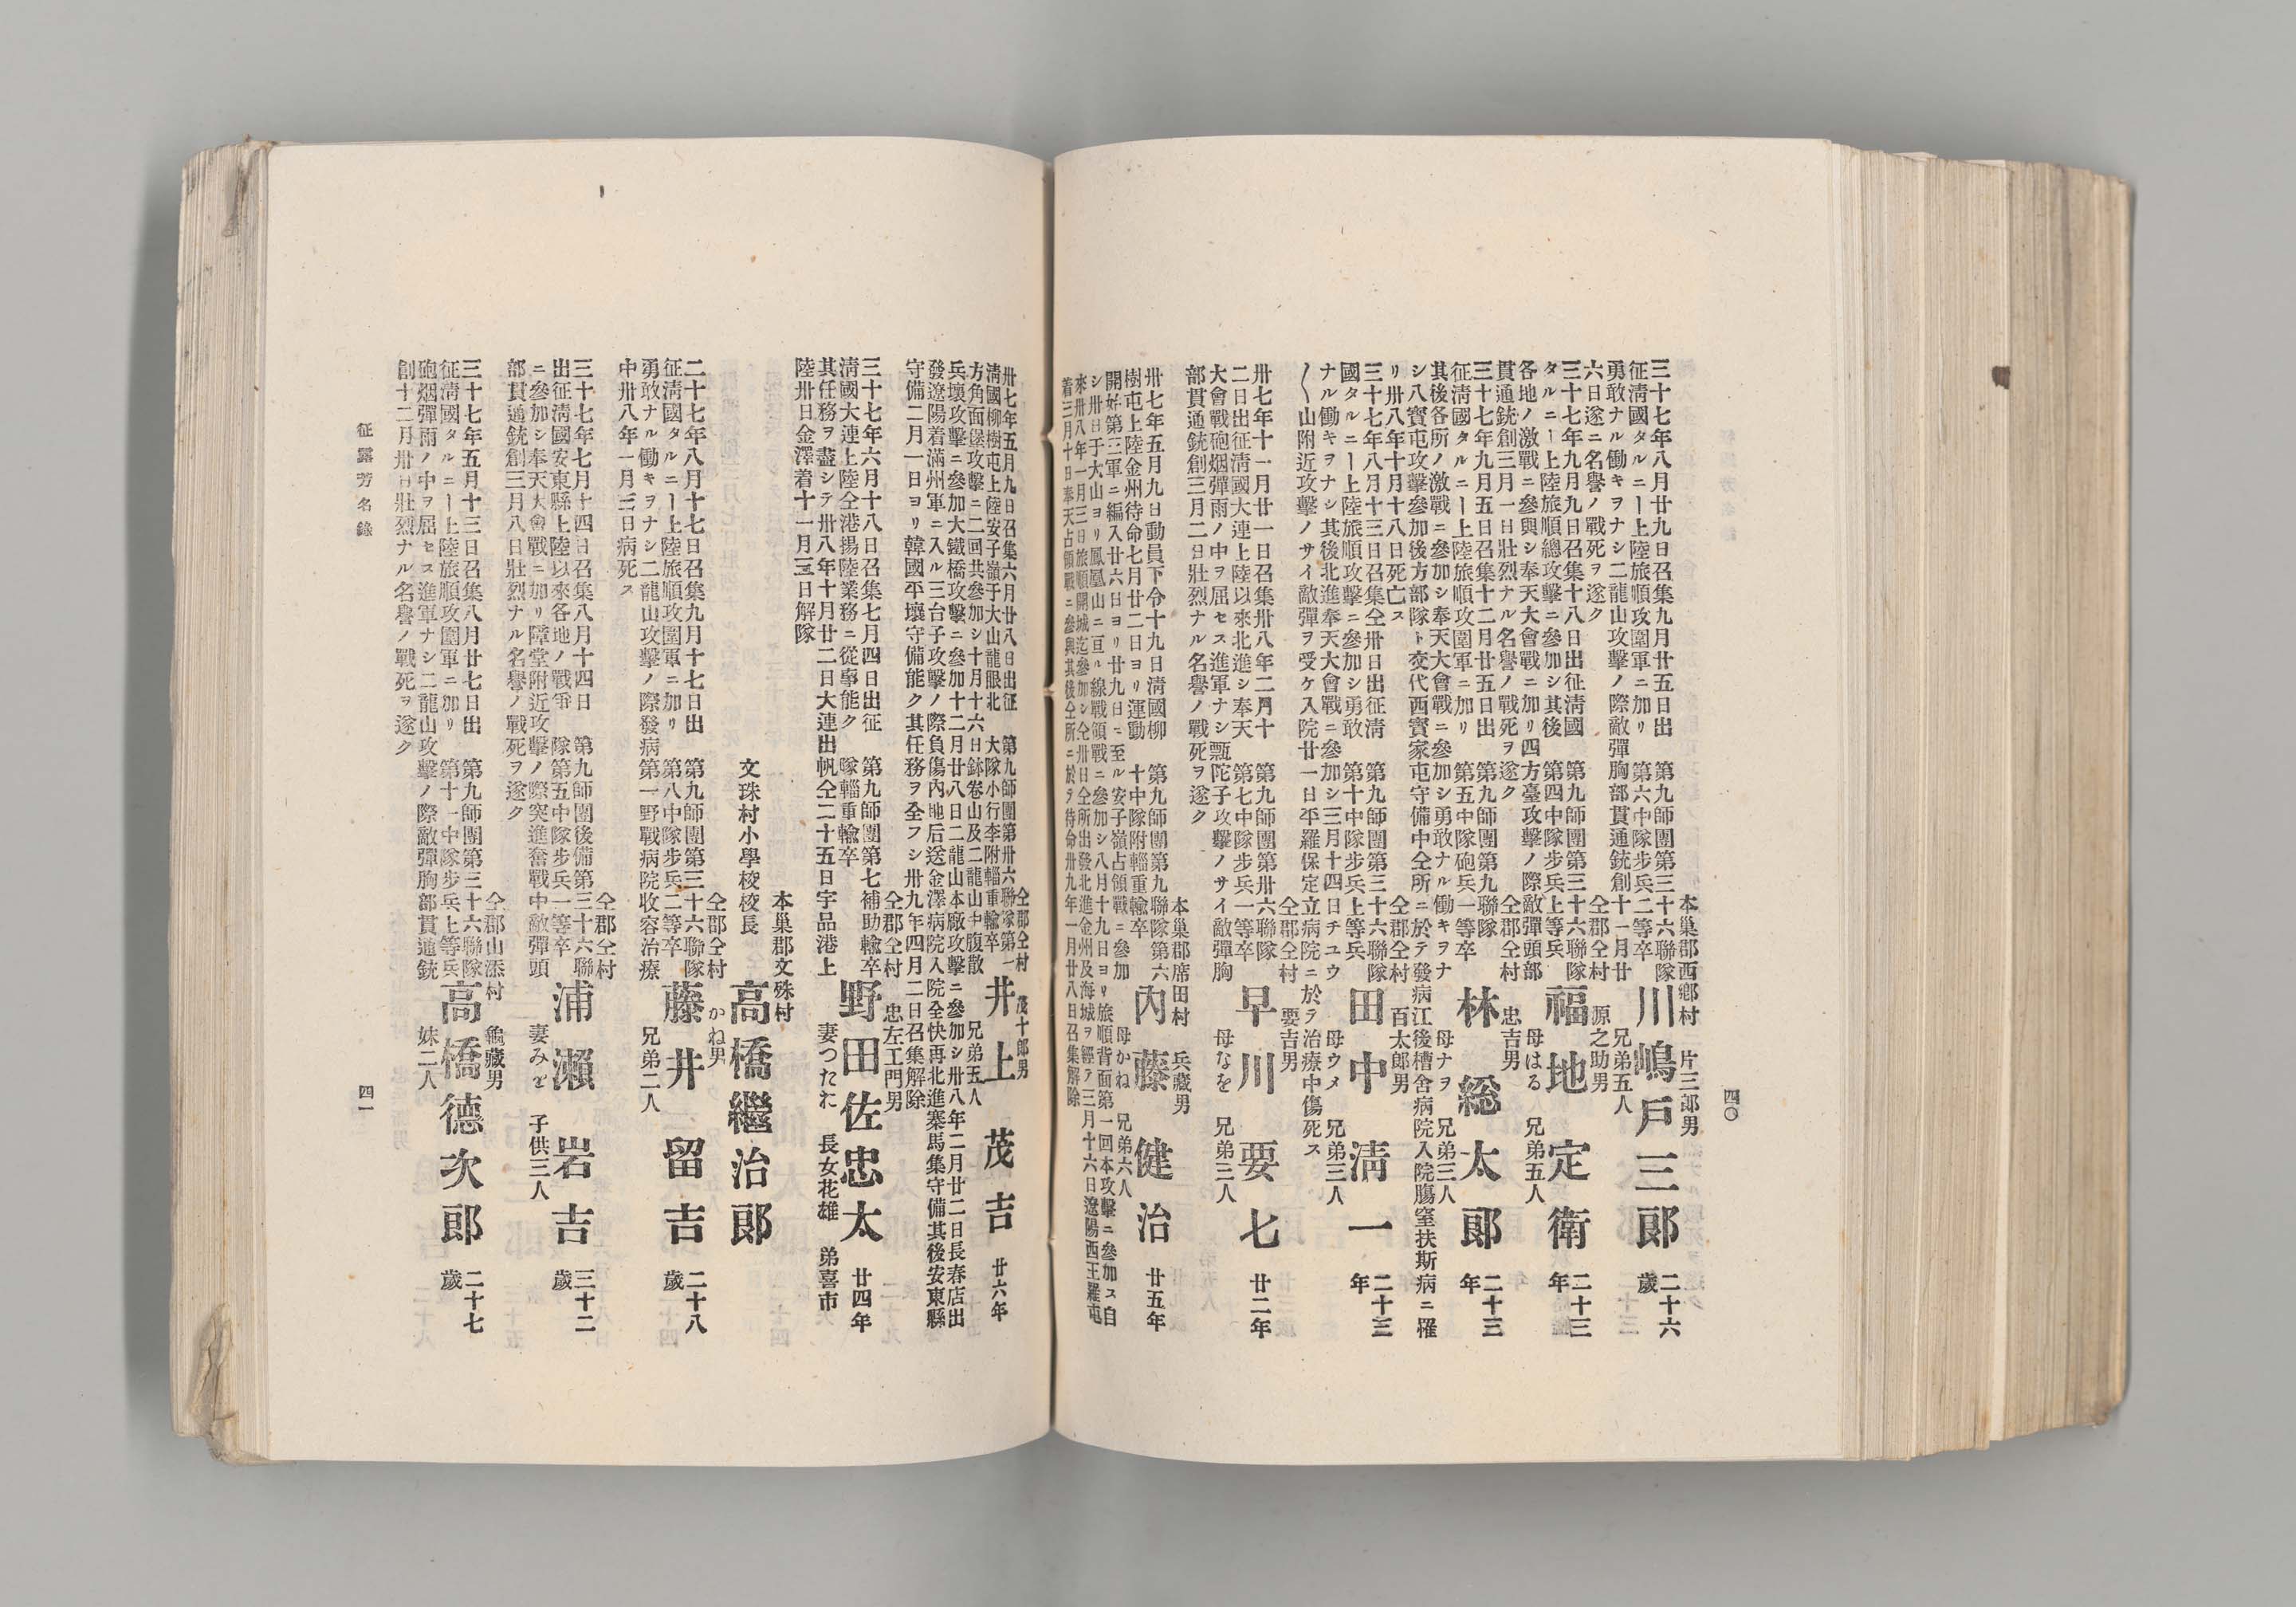 四〇
本巢郡西鄕村　片三郎男
三十七年八月廿九日召集九月廿五日出　第九師團第三十六聯隊　川嶋戶三郎　二十六
征淸國タルニー上陸旅順攻圍軍ニ加リ　第六中隊步兵二等卒　歲
勇敢ナル働キヲナシ二龍山攻擊ノ際敵彈胸部貫通銃創十一月廿　兄弟五人
六日遂ニ名譽ノ戰死ヲ遂ク
仝郡仝村　源之助男
三十七年九月九日召集十八日出征淸國　第九師團第三十六聯隊　福地定衛　二十三
タルニー上陸旅順總攻擊ニ參加シ其後　第四中隊步兵上等兵　年
各地ノ激戰ニ參與シ奉天大會戰ニ加リ四方臺攻擊ノ際敵彈頭部　母はる　兄弟五人
貫通銃創三月一日壯烈ナル名譽ノ戰死ヲ遂ク
仝郡仝村　忠吉男
三十七年九月五日召集十二月廿五日出　第九師團第九聯隊　林総太郎　二十三
征淸國タルニー上陸旅順攻圍軍ニ加リ　第五中隊砲兵一等卒　年
其後各所ノ激戰ニ參加シ奉天大會戰ニ參加シ勇敢ナル働キヲナ　母ナヲ　兄弟三人
シ八寶屯攻擊參加後方部隊ト交代西寶家屯守備中仝所ニ於テ發病江後槽舍病院入院膓窒扶斯病ニ罹
リ卅八年十月十八日死亡ス
仝郡仝村　百太郎男
三十七年八月十三日召集仝卅日出征淸　第九師團第三十六聯隊　田中淸一　二十三
國タルニー上陸旅順攻擊ニ參加シ勇敢　第十中隊步兵上等兵　年
ナル働キヲナシ其後北進奉天大會戰ニ參加シ三月十四日チユウ　母ウメ　兄弟三人
〱山附近攻擊ノサイ敵彈ヲ受ケ入院廿一日平羅保定立病院ニ於テ治療中傷死ス
仝郡仝村　要吉男
卅七年十一月廿一日召集卅八年二月十　第九師團第卅六聯隊　早川要七　廿二年
二日出征淸國大連上陸以來北進シ奉天　第七中隊步兵一等卒
大會戰砲烟彈雨ノ中ヲ屈セス進軍ナシ甎陀子攻擊ノサイ敵彈胸　母なを　兄弟三人
部貫通銃創三月二日壯烈ナル名譽ノ戰死ヲ遂ク
本巢郡席田村　兵藏男
卅七年五月九日動員下令十九日淸國柳　第九師團第九聯隊第六　內藤健治　廿五年
樹屯上陸金州待命七月廿二日ヨリ運動　十中隊附輜重輸卒
開始第三軍ニ編入廿六日ヨリ廿九日ニ至ル安子嶺占領戰ニ參加　母かね　兄弟六人
シ卅日于大山ヨリ鳳凰山ニ亘ル線戰領戰ニ參加シ八月十九日ヨリ旅順背面第一回本攻擊ニ參加ス自
來卅八年一月三日旅順開城迄參加シ仝卅日仝所出發北進金州及海城ヲ經テ三月十六日遼陽西王羅屯
着三月十日奉天占領戰ニ參與其後仝所ニ於テ待命卅九年一月廿八日召集解除
仝郡仝村　茂十郎男
卅七年五月九日召集六月廿八日出征　第九師團第卅六聯隊第一　井上茂吉　廿六年
淸國柳樹屯上陸安子嶺于大山龍眼北　大隊小行李附輜重輸卒
方角面堡攻擊ニ二回共參加シ十月十六日鉢卷山及二龍山中腹散　兄弟五人
兵壞攻擊ニ參加大鐵橋攻擊ニ參加十二月廿八日二龍山本廠攻擊ニ參加シ卅八年二月廿二日長春店出
發遼陽着滿州軍ニ入ル三台子攻擊ノ際負傷內地后送金澤病院入院全快再北進寨馬集守備其後安東縣
守備二月一日ヨリ韓國平壤守備能ク其任務ヲ全フシ卅九年四月二日召集解除
仝郡仝村　忠左エ門男
三十七年六月十八日召集七月四日出征　第九師團第七補助輸卒　野田佐忠太　廿四年
淸國大連上陸仝港揚陸業務ニ從事能ク　隊輜重輸卒
其任務ヲ盡シテ卅八年十月廿二日大連出帆仝二十五日宇品港上　妻つたね　長女花雄　弟喜市
陸卅日金澤着十一月三日解隊
本巢郡文殊村
文珠村小學校校長　高橋繼治郎
仝郡仝村　かね男
二十七年八月十七日召集九月十七日出　第九師團第三十六聯隊　藤井留吉　二十八
征淸國タルニー上陸旅順攻圍軍ニ加リ　第八中隊步兵二等卒　歲
勇敢ナル働キヲナシ二龍山攻擊ノ際發病第一野戰病院收容治療　兄弟二人
中卅八年一月三日病死ス
仝郡仝村
三十七年七月十四日召集八月十四日　第九師團後備第三十六聯　浦瀨岩吉　三十二
出征淸國安東縣上陸以來各地ノ戰爭　隊第五中隊步兵一等卒　歲
ニ參加シ奉天大會戰ニ加リ障堂附近攻擊ノ際突進奮戰中敵彈頭　妻みと　子供三人
部貫通銃創三月八日壯烈ナル名譽ノ戰死ヲ遂ク
仝郡山添村　龜藏男
三十七年五月十三日召集八月廿七日出　第九師團第三十六聯隊　高橋德次郎　二十七
征淸國タルニー上陸旅順攻圍軍ニ加リ　第十一中隊步兵上等兵　歲
砲烟彈雨ノ中ヲ屈セス進軍ナシ二龍山攻擊ノ際敵彈胸部貫通銃　妹二人
創十二月卅日壯烈ナル名譽ノ戰死ヲ遂ク
征露芳名錄
四一